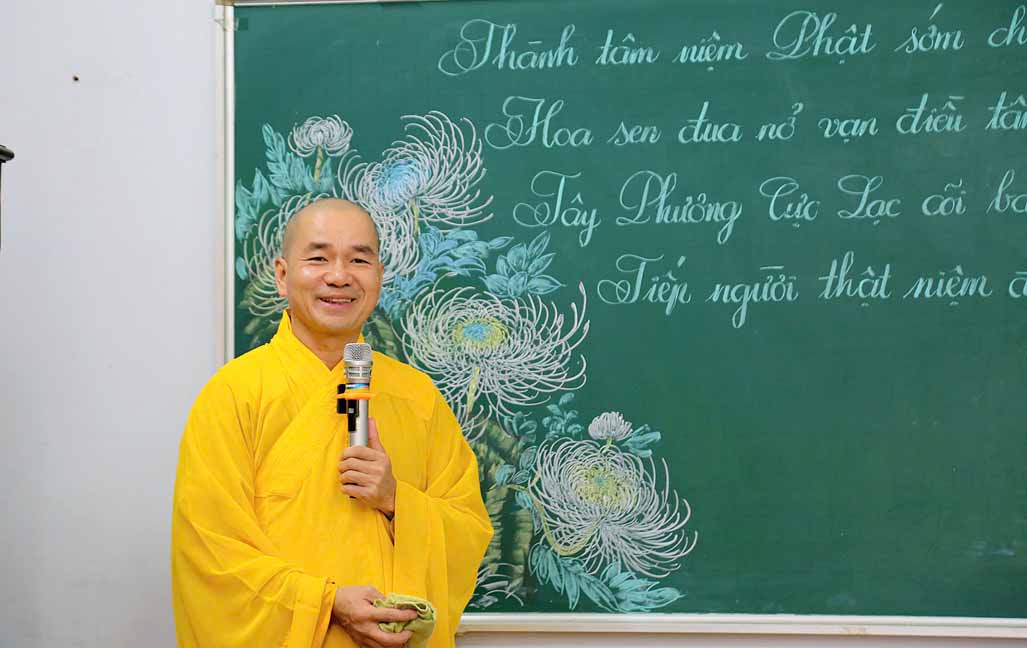 Thành tâm niệm Phật sớm
Hoa sen đua nở vạn điều
Tây Phương Cực Lạc cõi
Tiếp người thật niệm